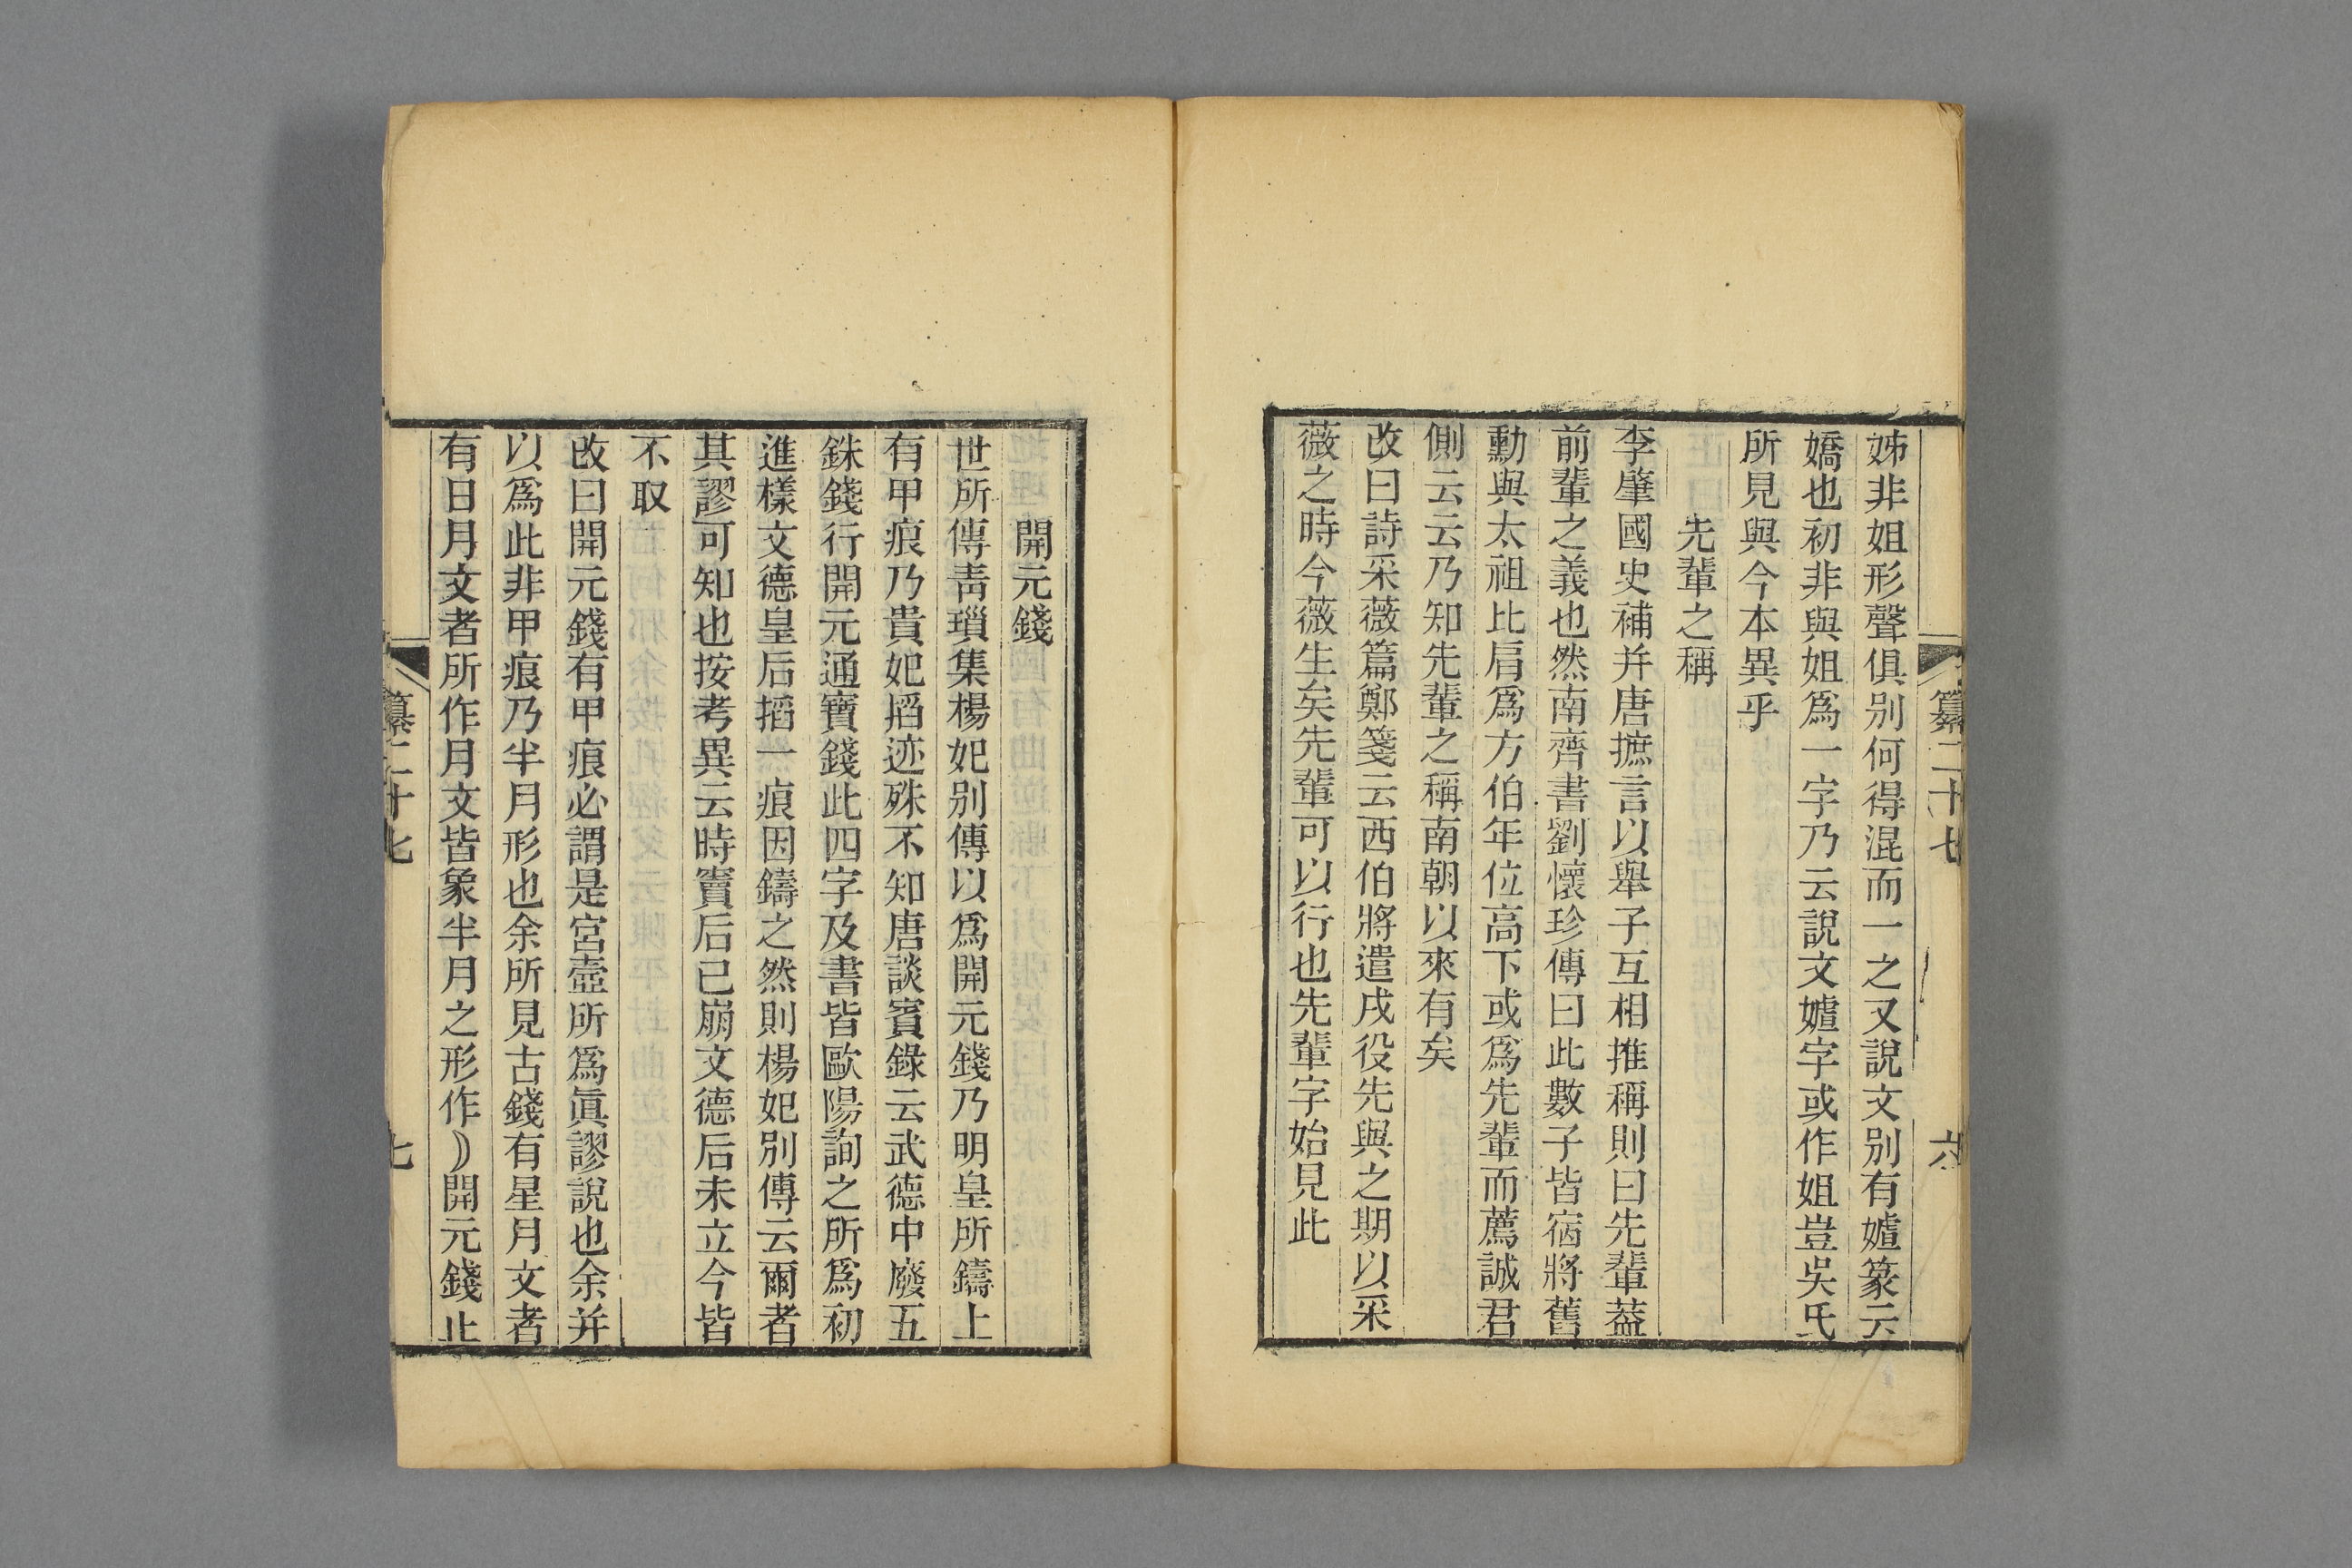 姊非姐形聲俱别何得混而一之又說文别有嫭篆云
嬌也初非與姐爲一字乃云說文嫭字或作姐豈吳氏
所見與今本異乎
先輩之稱
李肇國史補并唐摭言以舉子互相推稱則曰先輩葢
前輩之義也然南齊書劉懷珍傳曰此數子皆宿將舊
勳與太祖比肩爲方伯年位高下或爲先輩而薦誠君
側云云乃知先輩之稱南朝以來有矣
攺曰詩采薇篇鄭箋云西伯將遣戌役先與之期以采
薇之時今薇生矣先輩可以行也先輩字始見此
纂二十七
六
開元錢
世所傳靑瑣集楊妃别傳以爲開元錢乃明皇所鑄上
有甲痕乃貴妃搯迹殊不知唐談賓錄云武德中廢五
銖錢行開元通寶錢此四字及書皆歐陽詢之所爲初
進樣文德皇后搯一痕因鑄之然則楊妃別傳云爾者
其謬可知也按考異云時竇后已崩文德后未立今皆
不取
攺曰開元錢有甲痕必謂是宮壼所爲眞謬說也余并
以爲此非甲痕乃半月形也余所見古錢有星月文者
有日月文者所作月文皆象半月之形作）開元錢止
纂二十七
七